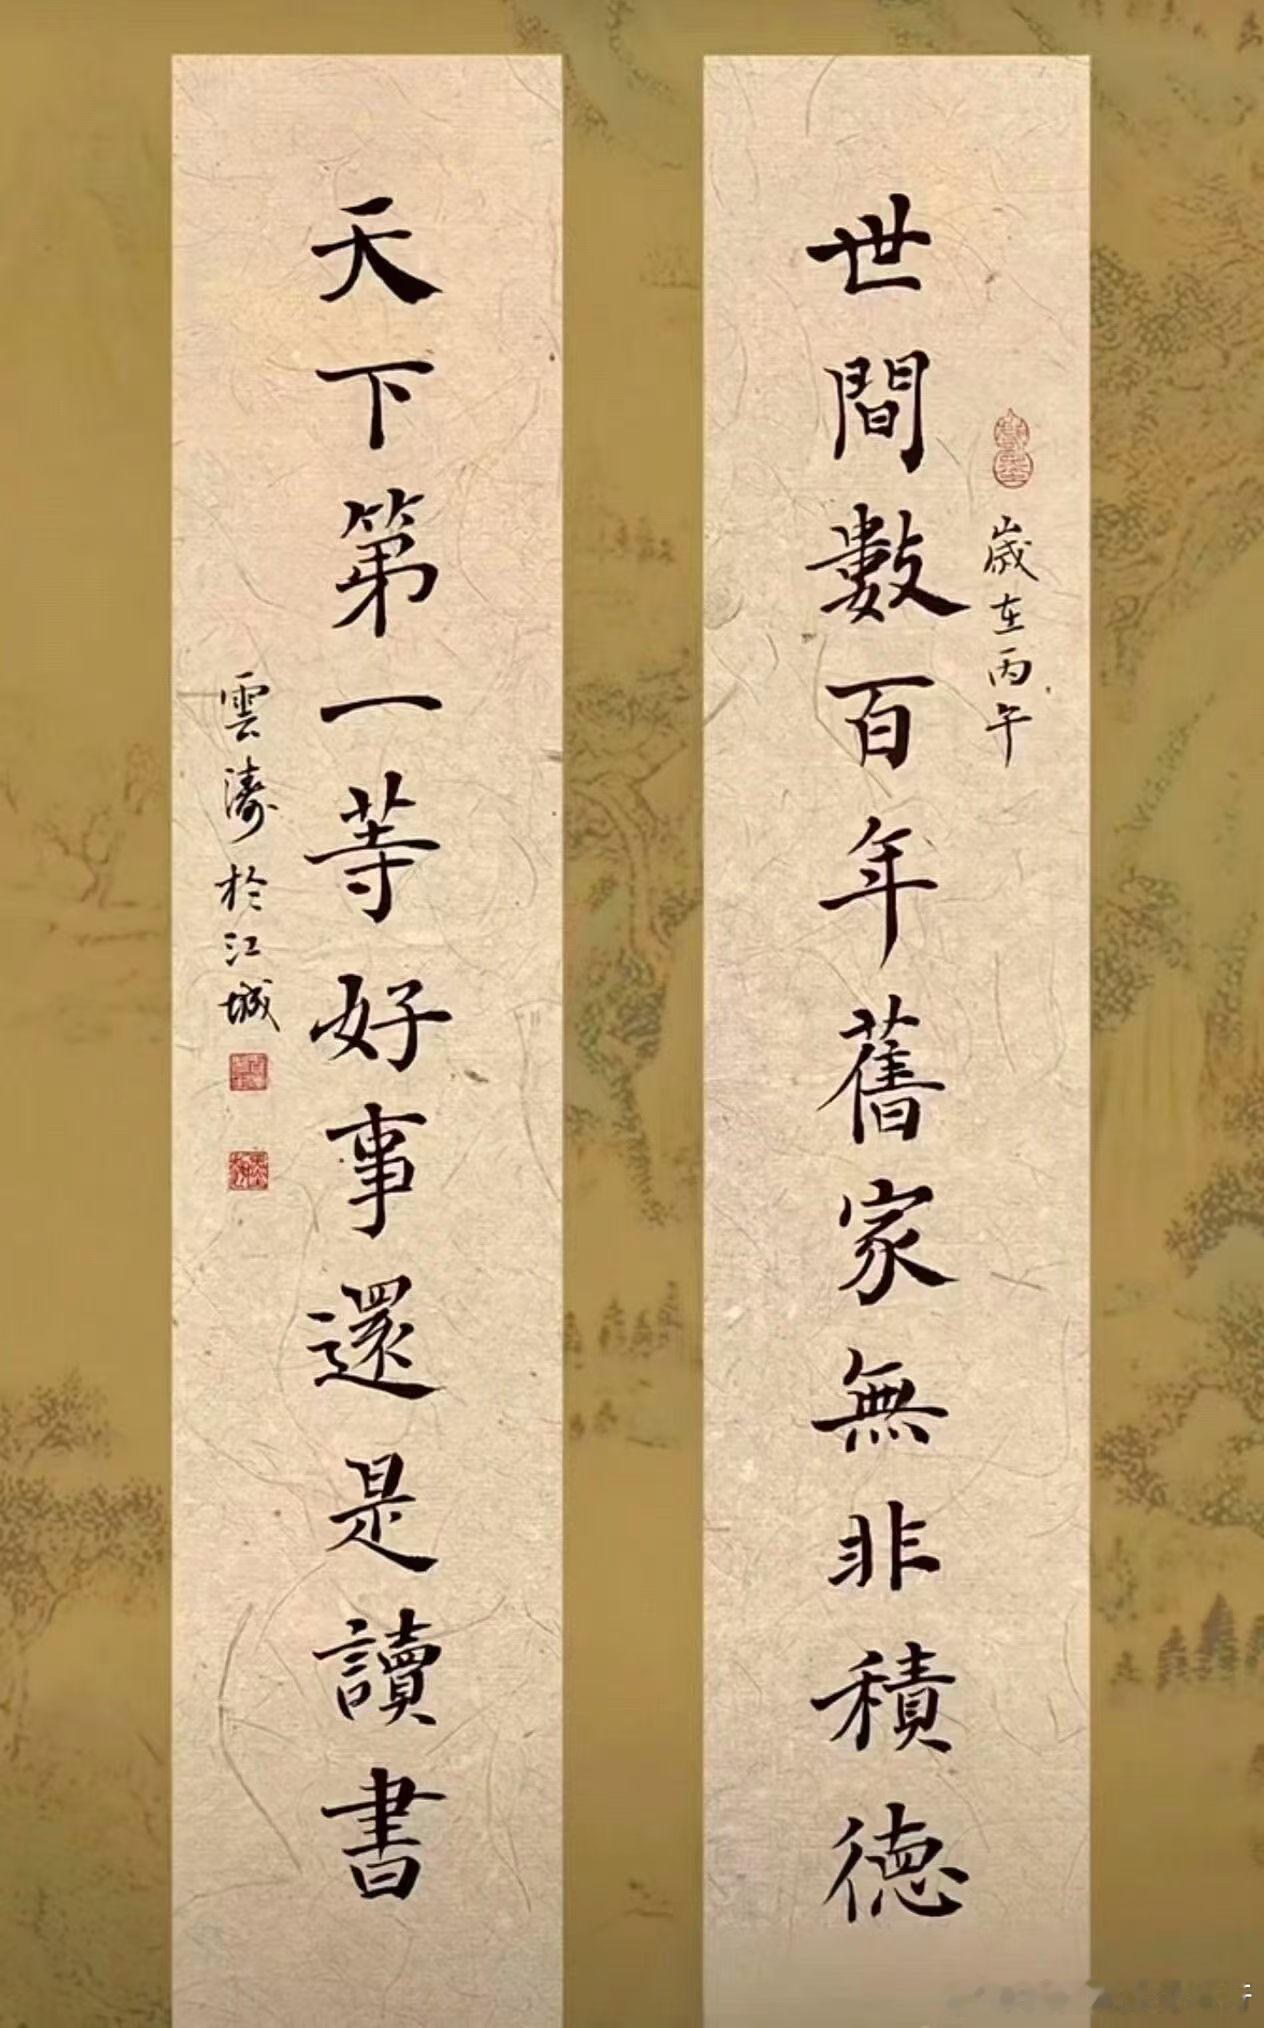 歲在丙午
世間數百年舊家無非積德
天下第一等好事還是讀書
雲濤於江城